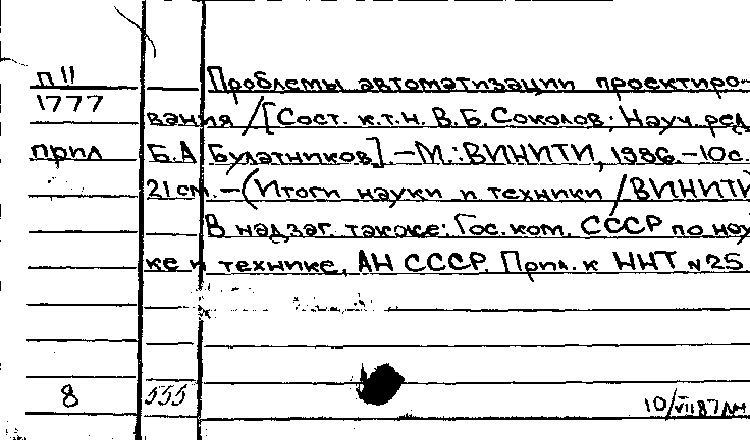 П11 Проблемы автоматизации проектиро-
1777 вания /[Сост. к.т.н. В.Б. Соколов; Науч. ред.
прил Б.А Булатников]. – М.: ВИНИТИ, 1986. – 10с.
21 см. – (Итоги науки и техники / ВИНИТИ
В надзаг. также: Гос. ком. СССР по нау
ке и технике, АН СССР. Прил. к ННТ №25
8 555
10/VII 87